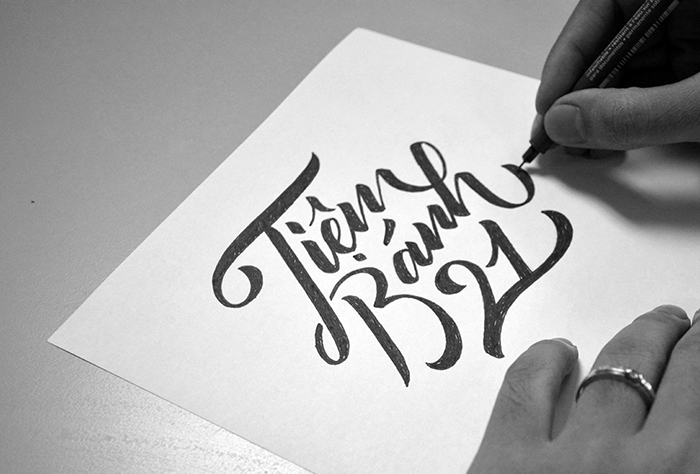 Tiệm
Bánh
21